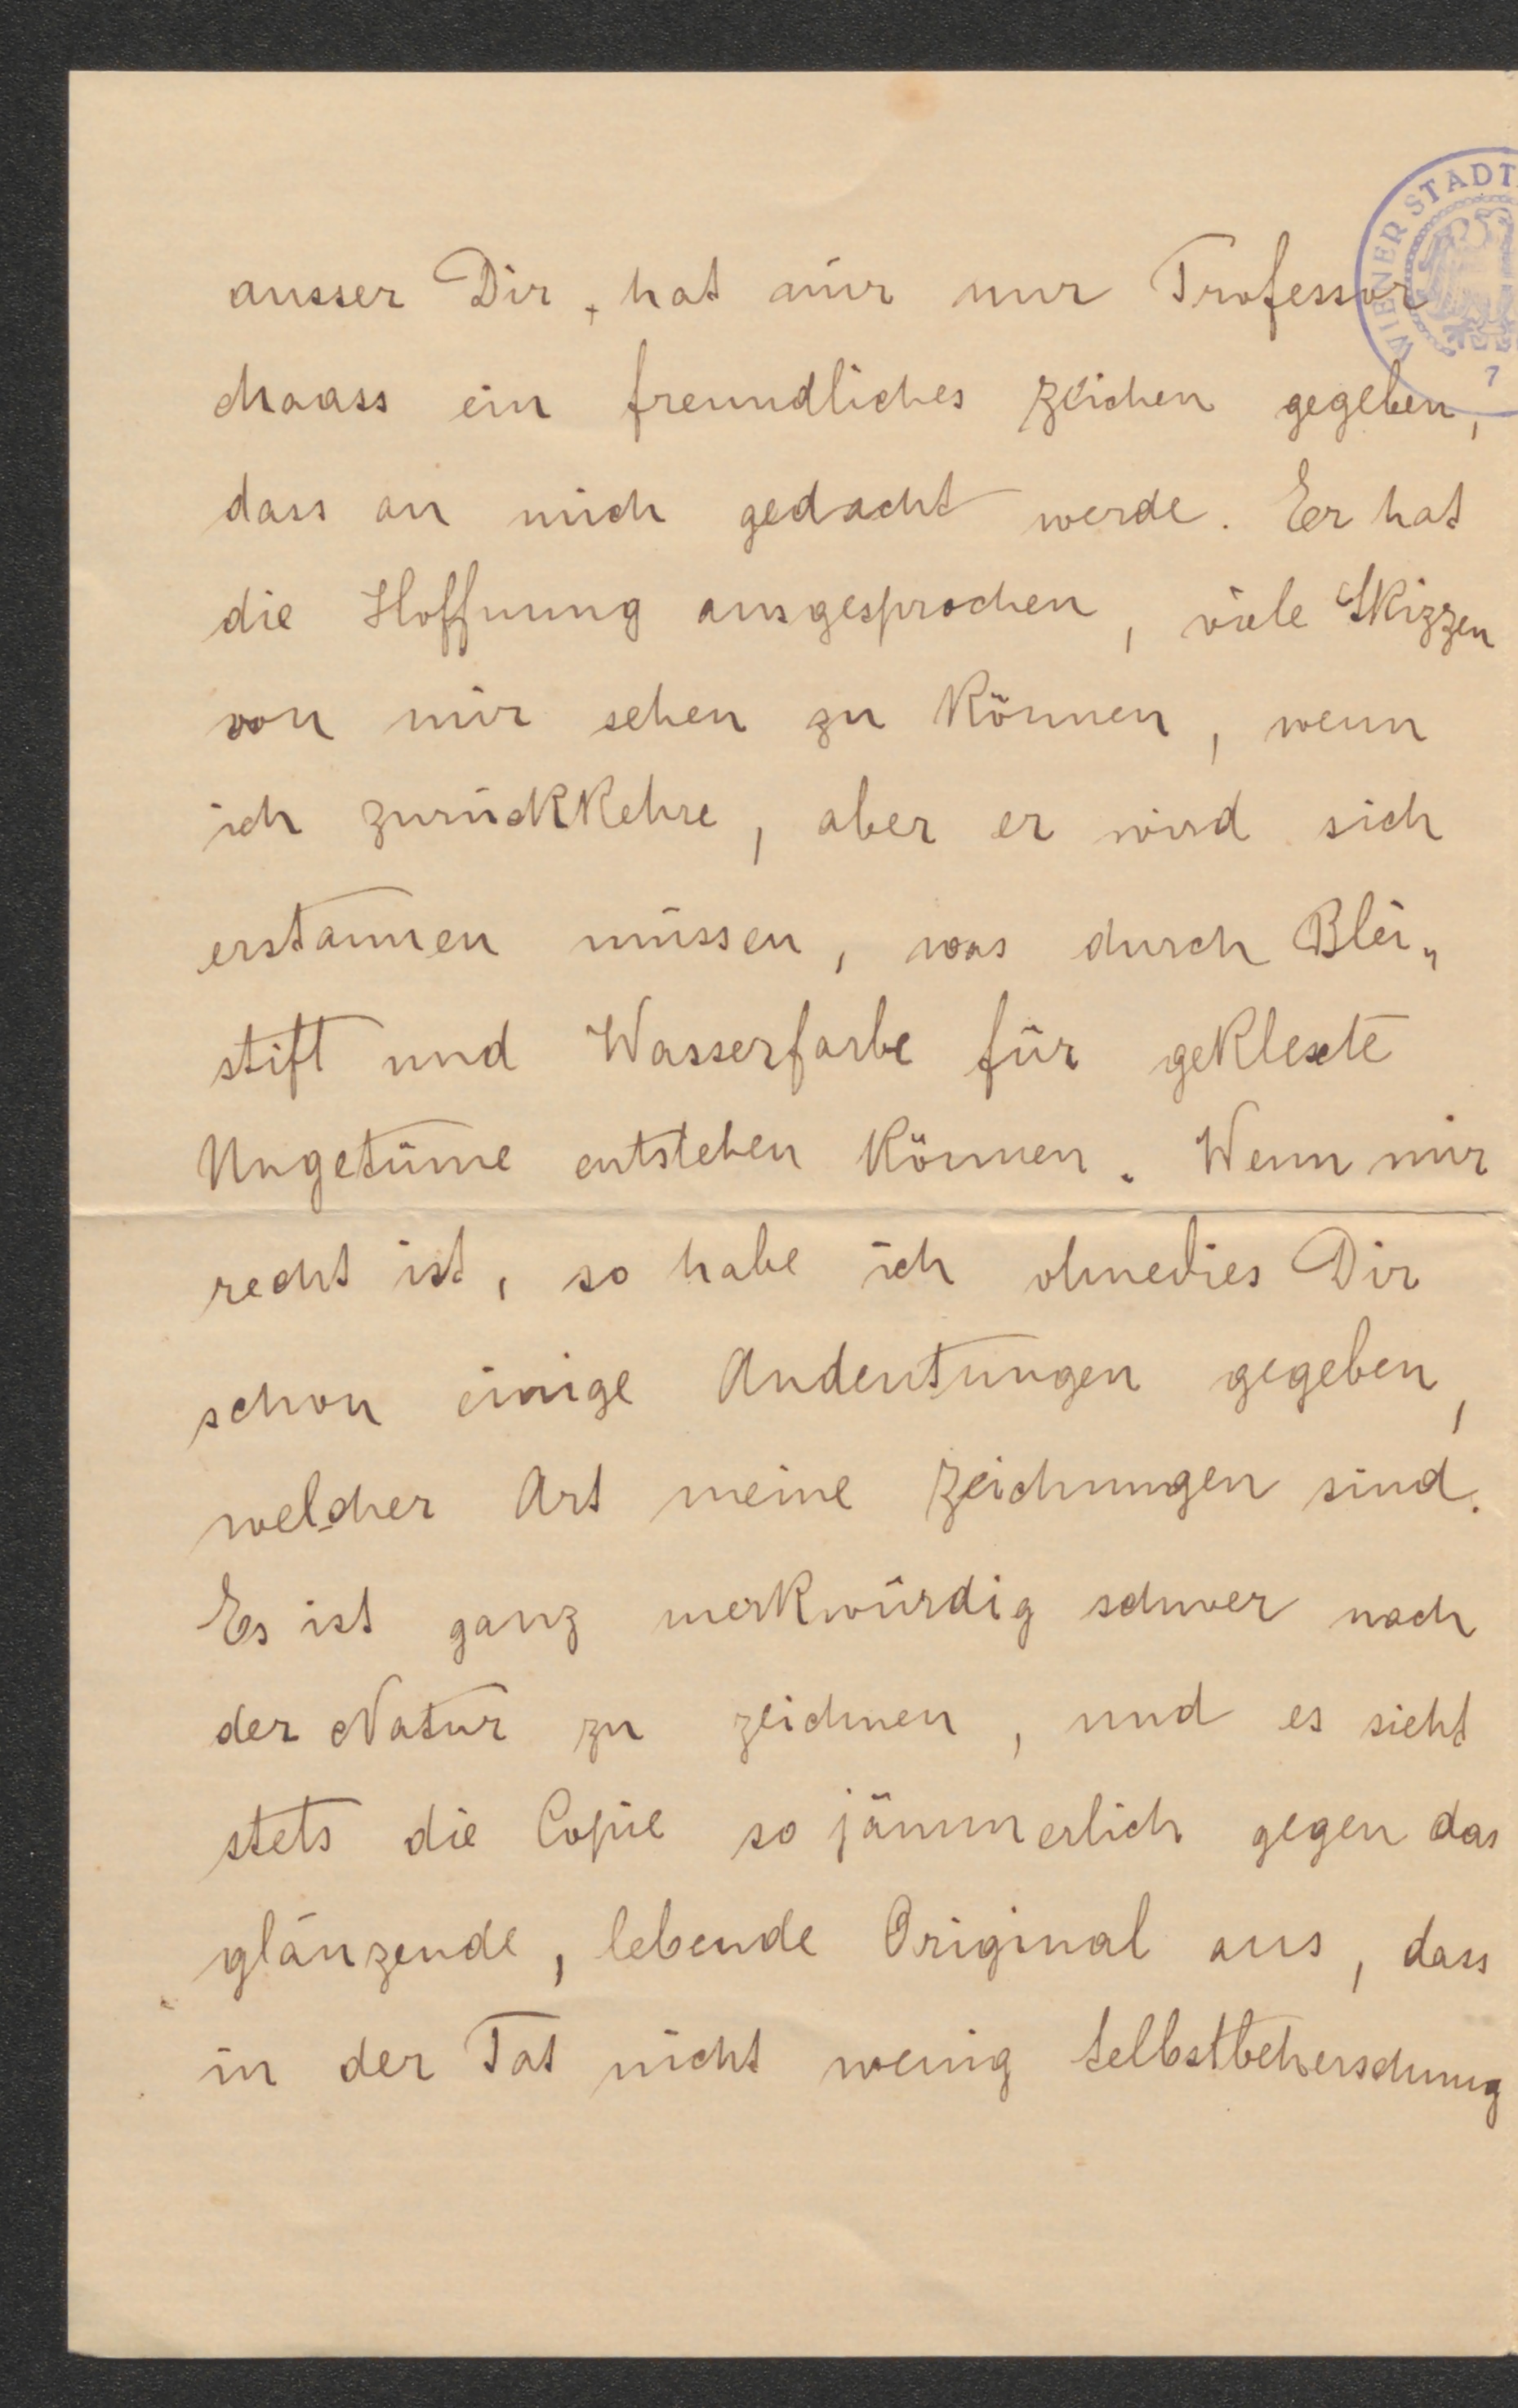 ausser Dir, hat mir nur Professor
Maass ein freundliches Zeichen gegeben,
dass an mich gedacht werde. Er hat
die Hoffnung ausgesprochen, viele Skizzen
von mir sehen zu können, wenn
ich zurückkehre, aber er wird sich
erstaunen müssen, was durch Blei„
stift und Wasserfarbe für geklexte
Ungetüme entstehen können. Wenn mir
recht ist, so habe ich ohnedies Dir
schon einige Andeutungen gegeben,
welcher Art meine Zeichnungen sind.
Es ist ganz merkwürdig schwer nach
der Natur zu zeichnen, und es sieht
stets die Copie so jämmerlich gegen das
glänzende, lebende Original aus, dass
in der Tat nicht wenig Selbstbeherschung
WIENER STADT
7